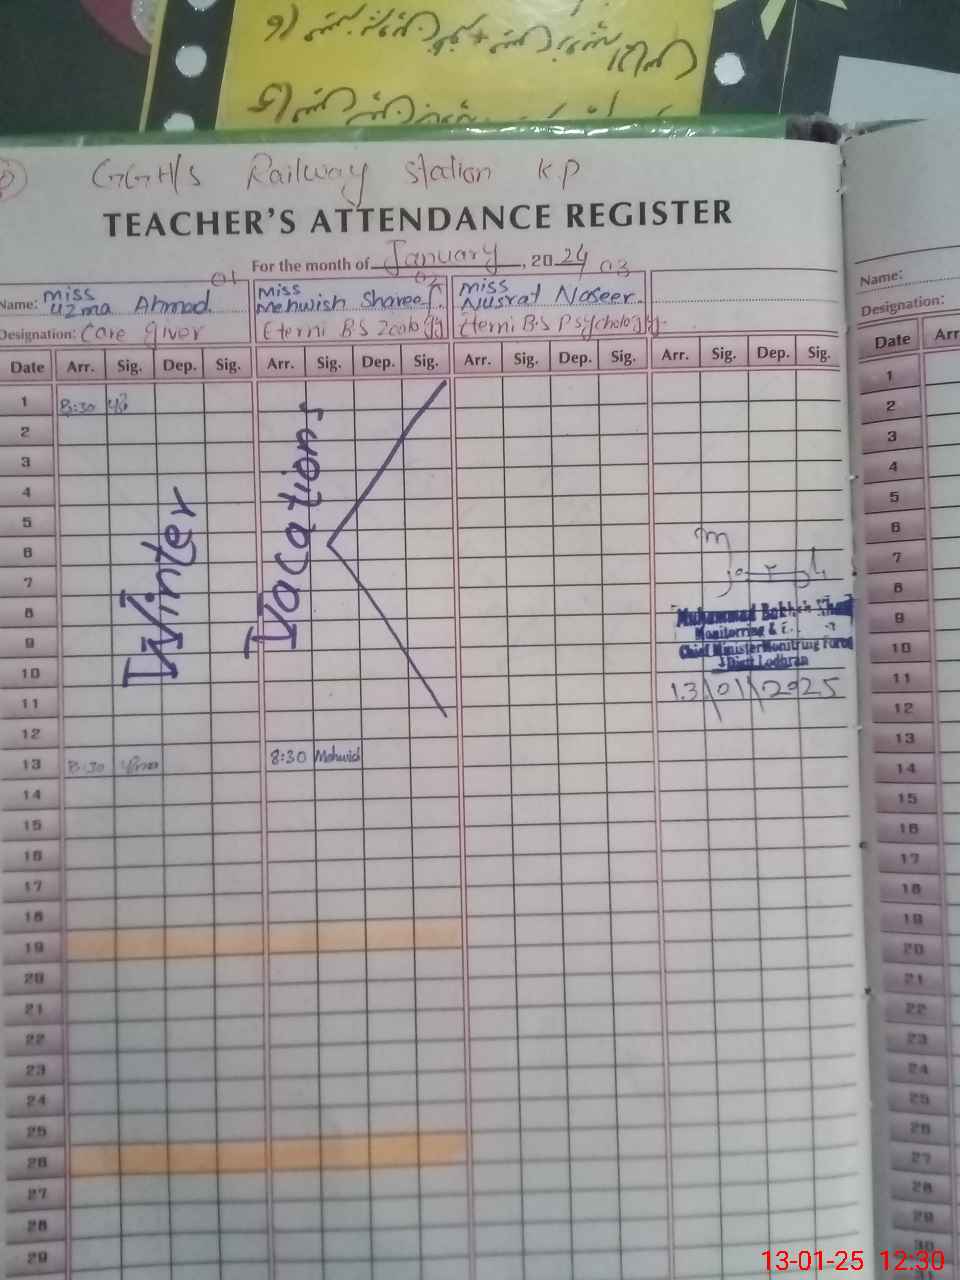 GGH/S Railway Station K.P
TEACHER'S ATTENDANCE REGISTER
For the month of January, 2024
01 02 03
Name: Miss Uzma Ahmad. Miss Mehwish Shareef. Miss Nusrat Naseer. Name:
Designation: Care giver Eterni B.S Zoology Eterni B.S Psychology. Designation:
Date Arr. Sig. Dep. Sig. Arr. Sig. Dep. Sig. Arr. Sig. Dep. Sig. Arr. Sig. Dep. Sig. Date Arr
1 8:30 1
2 2
3 3
4 4
5 5
6 6
7 7
8 8
9 9
10 10
11 11
12 12
13 8:30 8:30 Mehwish 13
14 14
15 15
16 16
17 17
18 18
19 19
20 20
21 21
22 22
23 23
24 24
25 25
26 26
27 27
28 28
29 29
30
Winter Vacations
Muhammad Bakhsh
Monitorring &
Chief Minister Monitring Force
Distt Lodhran
13/01/2025
13-01-25 12:30